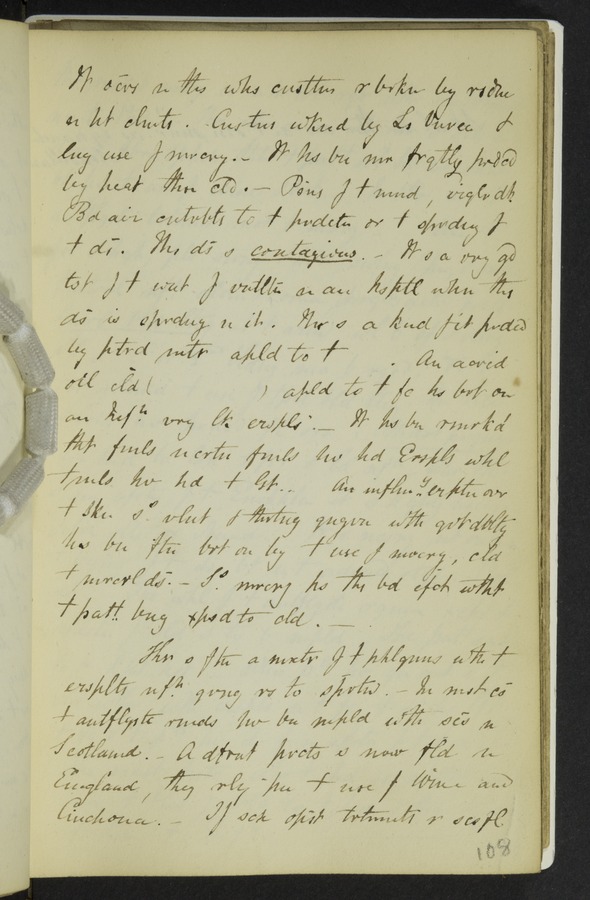 It ocrs n ths whs custtns r brkn by rsdnc
n ht clmts. Custns wknd by Ls Venrea &
lng use f mrcry. - It hs bn mr frqtly prdcd
by heat thn cld. - Pains f t mind,
Bd air cntrbts to t prdctn or t sprdng f
t ds. Ths ds s contagious. - It s a vry gd
tst f t wnt f vntltn n an hsptl whn ths
ds is sprdng n it. Thr s a knd f it prdcd
by ptrd mtr apld to t . An acrid
oil cld ( ) apld to t fc hs brt on
an Infn vry lk erspls. - It hs bn rmrkd
tht fmls n crtn fmls hv hd Erspls whl
t mls hv hd t Gt. - An inflmy erptn ovr
t skn so vlnt & thrtng gngrn wth gt dblty
hs bn ftn brt on by t use f mrcry, cld
t mrcrl ds. - So mrcry hs ths bd efct wtht
t patt bng xpsd to cld. -
Thr s ftn a mxtr f t phlgmns wth t
ersplts nfn gvng rs to . - In mst cs
t antflgstc rmds hv bn mpld wth scs n
Scotland. - A dfrnt prcts s now flld n
England, they rly pn t use f Wine and
Cinchona. - If sch opst trtmnts r scsfl
108